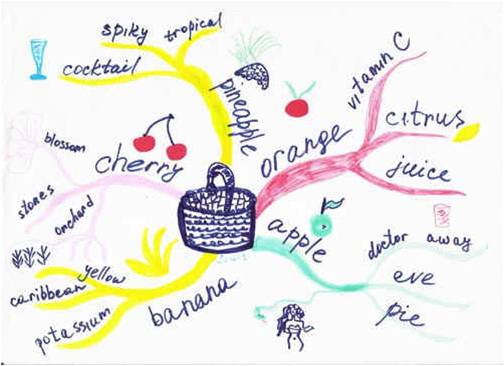 spiky
tropical
cocktail
pineapple
vitamin C
orange
citrus
juice
blossom
cherry
stones
orchard
apple
doctor away
eve
pie
yellow
caribbean
potassium
banana